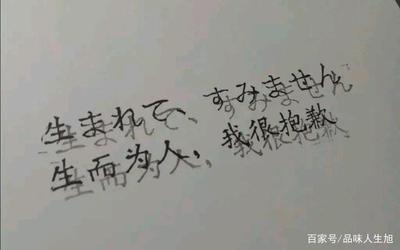 生まれて、すみません
生而为人，我很抱歉
百家号/品味人生旭